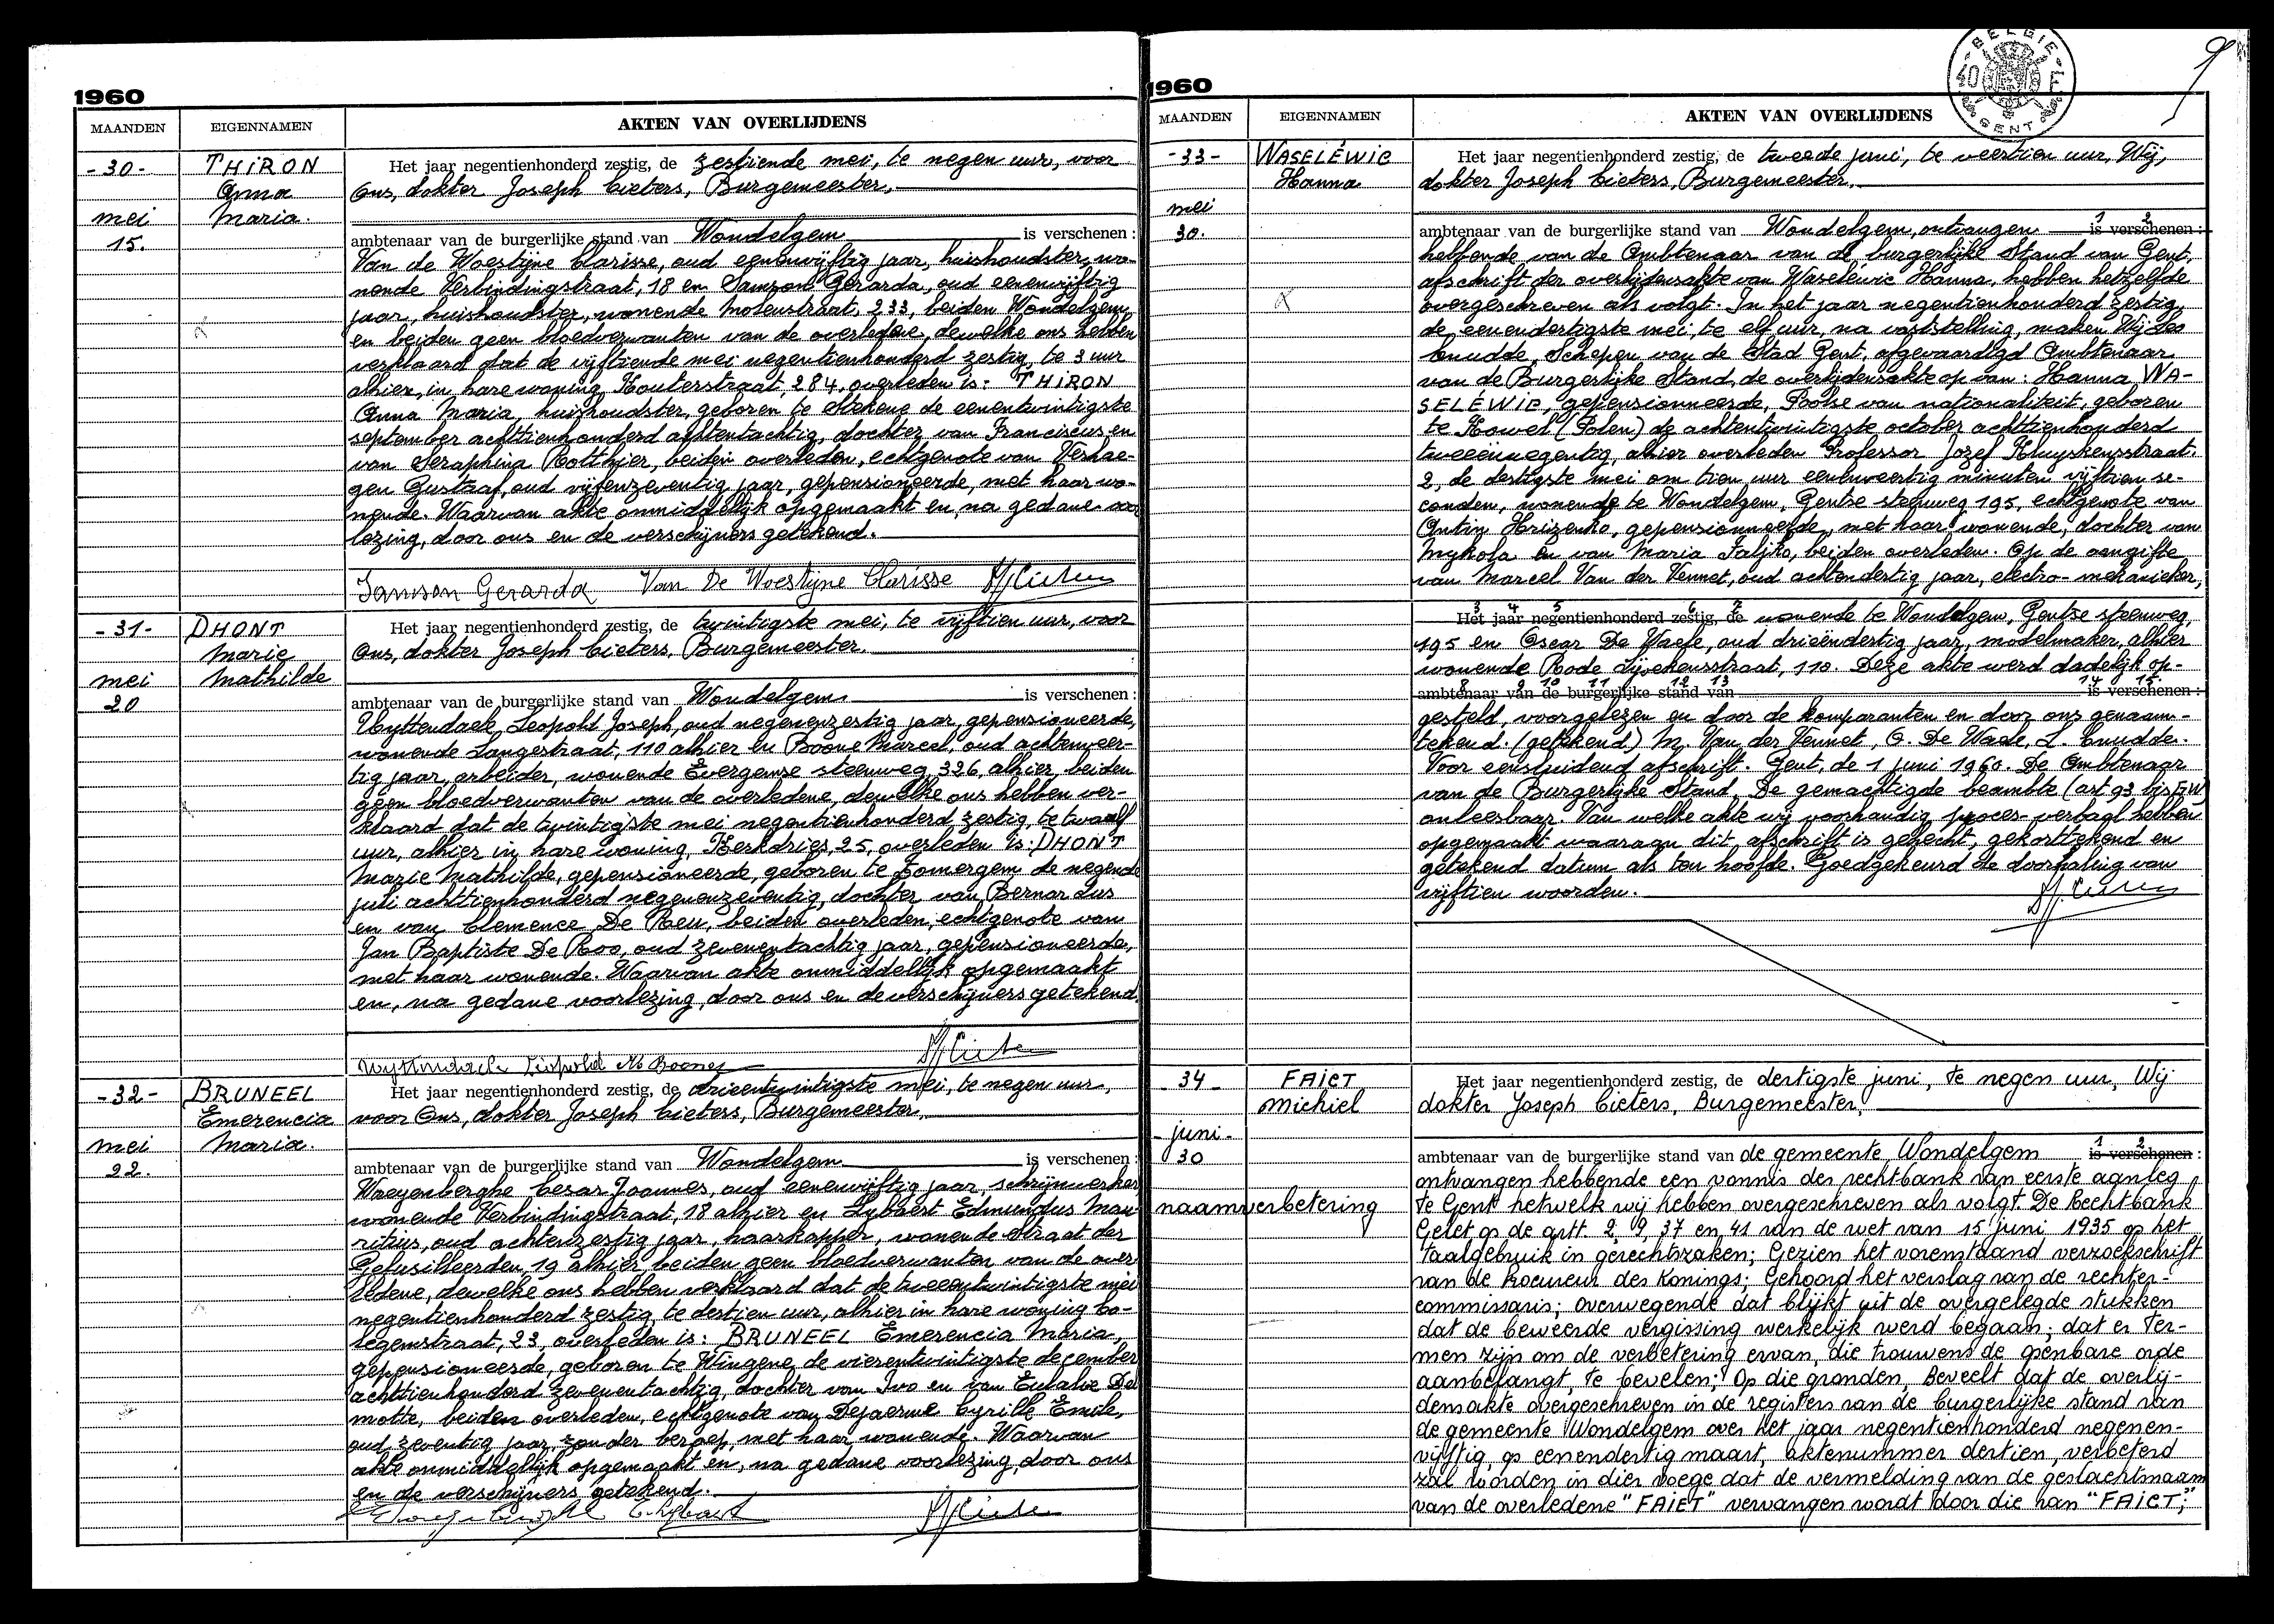 1960
MAANDEN EIGENNAMEN AKTEN VAN OVERLIJDENS
-30- THIRON Anna Maria.
mei 15.
Het jaar negentienhonderd zestig, de zestiende mei, te negen uur, voor
Ons, dokter Joseph Cieters, Burgemeester,
ambtenaar van de burgerlijke stand van Wondelgem is verschenen :
Van de Woestijne Clarisse, oud eenenvijftig jaar, huishoudster, wo-
nende Verbindingstraat, 18 en Samson Gerarda, oud eenenvijftig
jaar, huishoudster, wonende Molenstraat, 233, beiden Wondelgem,
en beiden geen bloedverwanten van de overledene, dewelke ons hebben
verklaard dat de vijftiende mei negentienhonderd zestig, te 3 uur
alhier, in hare woning, Houterstraat, 284, overleden is: THIRON
Anna Maria, huishoudster, geboren te Stekene de eenentwintigste
september achttienhonderd achtentachtig, dochter van Franciscus en
van Seraphina Rotthier, beiden overleden, echtgenote van Verhae-
gen Gustaaf, oud vijfenzeventig jaar, gepensioneerde, met haar wo-
nende. Waarvan akte onmiddellijk opgemaakt en, na gedane voor
lezing, door ons en de verschijners getekend.
Samson Gerarda Van De Woestijne Clarisse
-31- DHONT Marie Mathilde
mei 20
Het jaar negentienhonderd zestig, de twintigste mei, te vijftien uur, voor
Ons, dokter Joseph Cieters, Burgemeester.
ambtenaar van de burgerlijke stand van Wondelgem is verschenen :
Uyttendaele Leopold Joseph, oud negenenzestig jaar, gepensioneerde,
wonende Langestraat, 110 alhier en Boone Marcel, oud achtenveer-
tig jaar, arbeider, wonende Evergemse steenweg, 326, alhier, beiden
geen bloedverwanten van de overledene, dewelke ons hebben ver-
klaard dat de twintigste mei negentienhonderd zestig, te twaalf
uur, alhier in hare woning, Kerkdries, 25, overleden is: DHONT
Marie Mathilde, gepensioneerde, geboren te Zomergem de negende
juli achttienhonderd negenenzeventig, dochter van Bernardus
en van Clemence De Reu, beiden overleden, echtgenote van
Jan Baptiste De Roo, oud zevenentachtig jaar, gepensioneerde,
met haar wonende. Waarvan akte onmiddellijk opgemaakt
en, na gedane voorlezing, door ons en de verschijners getekend.
Uyttendaele Leopold M. Boone
-32- BRUNEEL Emerencia Maria.
mei 22.
Het jaar negentienhonderd zestig, de drieentwintigste mei, te negen uur,
voor Ons, dokter Joseph Cieters, Burgemeester,
ambtenaar van de burgerlijke stand van Wondelgem is verschenen :
Waeyenberghe Cesar Joannes, oud eenenvijftig jaar, schrijnwerker,
wonende Verbindingstraat, 18 alhier en Lybaert Edmundus Mau-
ritius, oud achtenzestig jaar, haarkapper, wonende Straat der
Gefusilleerden, 19 alhier, beiden geen bloedverwanten van de over-
ledene, dewelke ons hebben verklaard dat de tweeentwintigste mei
negentienhonderd zestig, te dertien uur, alhier in hare woning Co-
legemstraat, 23, overleden is: BRUNEEL Emerencia Maria,
gepensioneerde, geboren te Wingene de vierentwintigste december
achttienhonderd zevenentachtig, dochter van Ivo en van Eulalie De
motte, beiden overleden, echtgenote van Dejaerme Cyrille Emile,
oud zeventig jaar, zonder beroep, met haar wonende. Waarvan
akte onmiddellijk opgemaakt en, na gedane voorlezing, door ons
en de verschijners getekend.
1960
BELGIE 40 F. GENT
9
MAANDEN EIGENNAMEN AKTEN VAN OVERLIJDENS
-33- WASELÉWIC Hanna
mei 30.
Het jaar negentienhonderd zestig, de tweede juni, te veertien uur, Wij,
dokter Joseph Cieters, Burgemeester,
ambtenaar van de burgerlijke stand van Wondelgem, ontvangen 1 2 is verschenen :
hebbende van de Ambtenaar van de burgerlijke Stand van Gent,
afschrift der overlijdensakte van Waseléwic Hanna, hebben hetzelfde
overgeschreven als volgt. In het jaar negentienhonderd zestig,
de eenendertigste mei, te elf uur, na vaststelling, maken Wij Leo
Cnudde, Schepen van de Stad Gent, afgevaardigd Ambtenaar
van de Burgerlijke Stand, de overlijdensakte op van: Hanna WA-
SELÉWIC, gepensionneerde, Poolse van nationaliteit, geboren
te Kowel (Polen) de achtentwintigste october achttienhonderd
tweeënnegentig, alhier overleden Professor Jozef Kluyskensstraat.
2, de dertigste mei om tien uur eenenveertig minuten vijftien se-
conden, wonende te Wondelgem, Gentse steenweg 195, echtgenote van
Antin Hrizenko, gepensionneerde, met haar wonende, dochter van
Mykola en van Maria Faljko, beiden overleden. Op de aangifte
van Marcel Van der Vennet, oud achtendertig jaar, electro-mekanieker,
3 4 5 6 7
Het jaar negentienhonderd zestig, de wonende te Wondelgem, Gentse steenweg,
195 en Oscar De Waele, oud drieëndertig jaar, modelmaker, alhier
wonende Rode Lijvekensstraat, 110. Deze akte werd dadelijk op-
8 9 10 11 12 13 14 15
ambtenaar van de burgerlijke stand van is verschenen :
gesteld, voorgelezen en door de komparanten en door ons genaam-
tekend. (getekend) M. Van der Vennet, O. De Waele, L. Cnudde.
Voor eensluidend afschrift. Gent, de 1 juni 1960. De Ambtenaar
van de Burgerlijke Stand, De gemachtigde beambte (art 93 bis GW)
onleesbaar. Van welke akte wij voorhandig proces-verbaal hebben
opgemaakt waaraan dit afschrift is gehecht, gekorttekend en
getekend datum als ten hoofde. Goedgekeurd de doorhaling van
vijftien woorden.
34 FAICT Michiel
-juni- 30
naamverbetering
Het jaar negentienhonderd zestig, de dertigste juni, te negen uur, Wij
dokter Joseph Cieters, Burgemeester,
ambtenaar van de burgerlijke stand van de gemeente Wondelgem 1 2 is verschenen :
ontvangen hebbende een vonnis der rechtbank van eerste aanleg
te Gent hetwelk wij hebben overgeschreven als volgt. De Rechtbank
Gelet op de artt. 2, 9, 37 en 41 van de wet van 15 juni 1935 op het
taalgebruik in gerechtszaken; Gezien het vorenstaand verzoekschrift
van de Procureur des Konings; Gehoord het verslag van de rechter-
commissaris; overwegende dat blijkt uit de overgelegde stukken
dat de beweerde vergissing werkelijk werd begaan; dat er ter-
men zijn om de verbetering ervan, die trouwens de openbare orde
aanbelangt, te bevelen; Op die gronden, Beveelt dat de overlij-
densakte overgeschreven in de registers van de burgerlijke stand van
de gemeente Wondelgem over het jaar negentienhonderd negenen-
vijftig, op eenendertig maart, aktenummer dertien, verbeterd
zal worden in dier voege dat de vermelding van de geslachtsnaam
van de overledene "FAIET" vervangen wordt door die van "FAICT;"